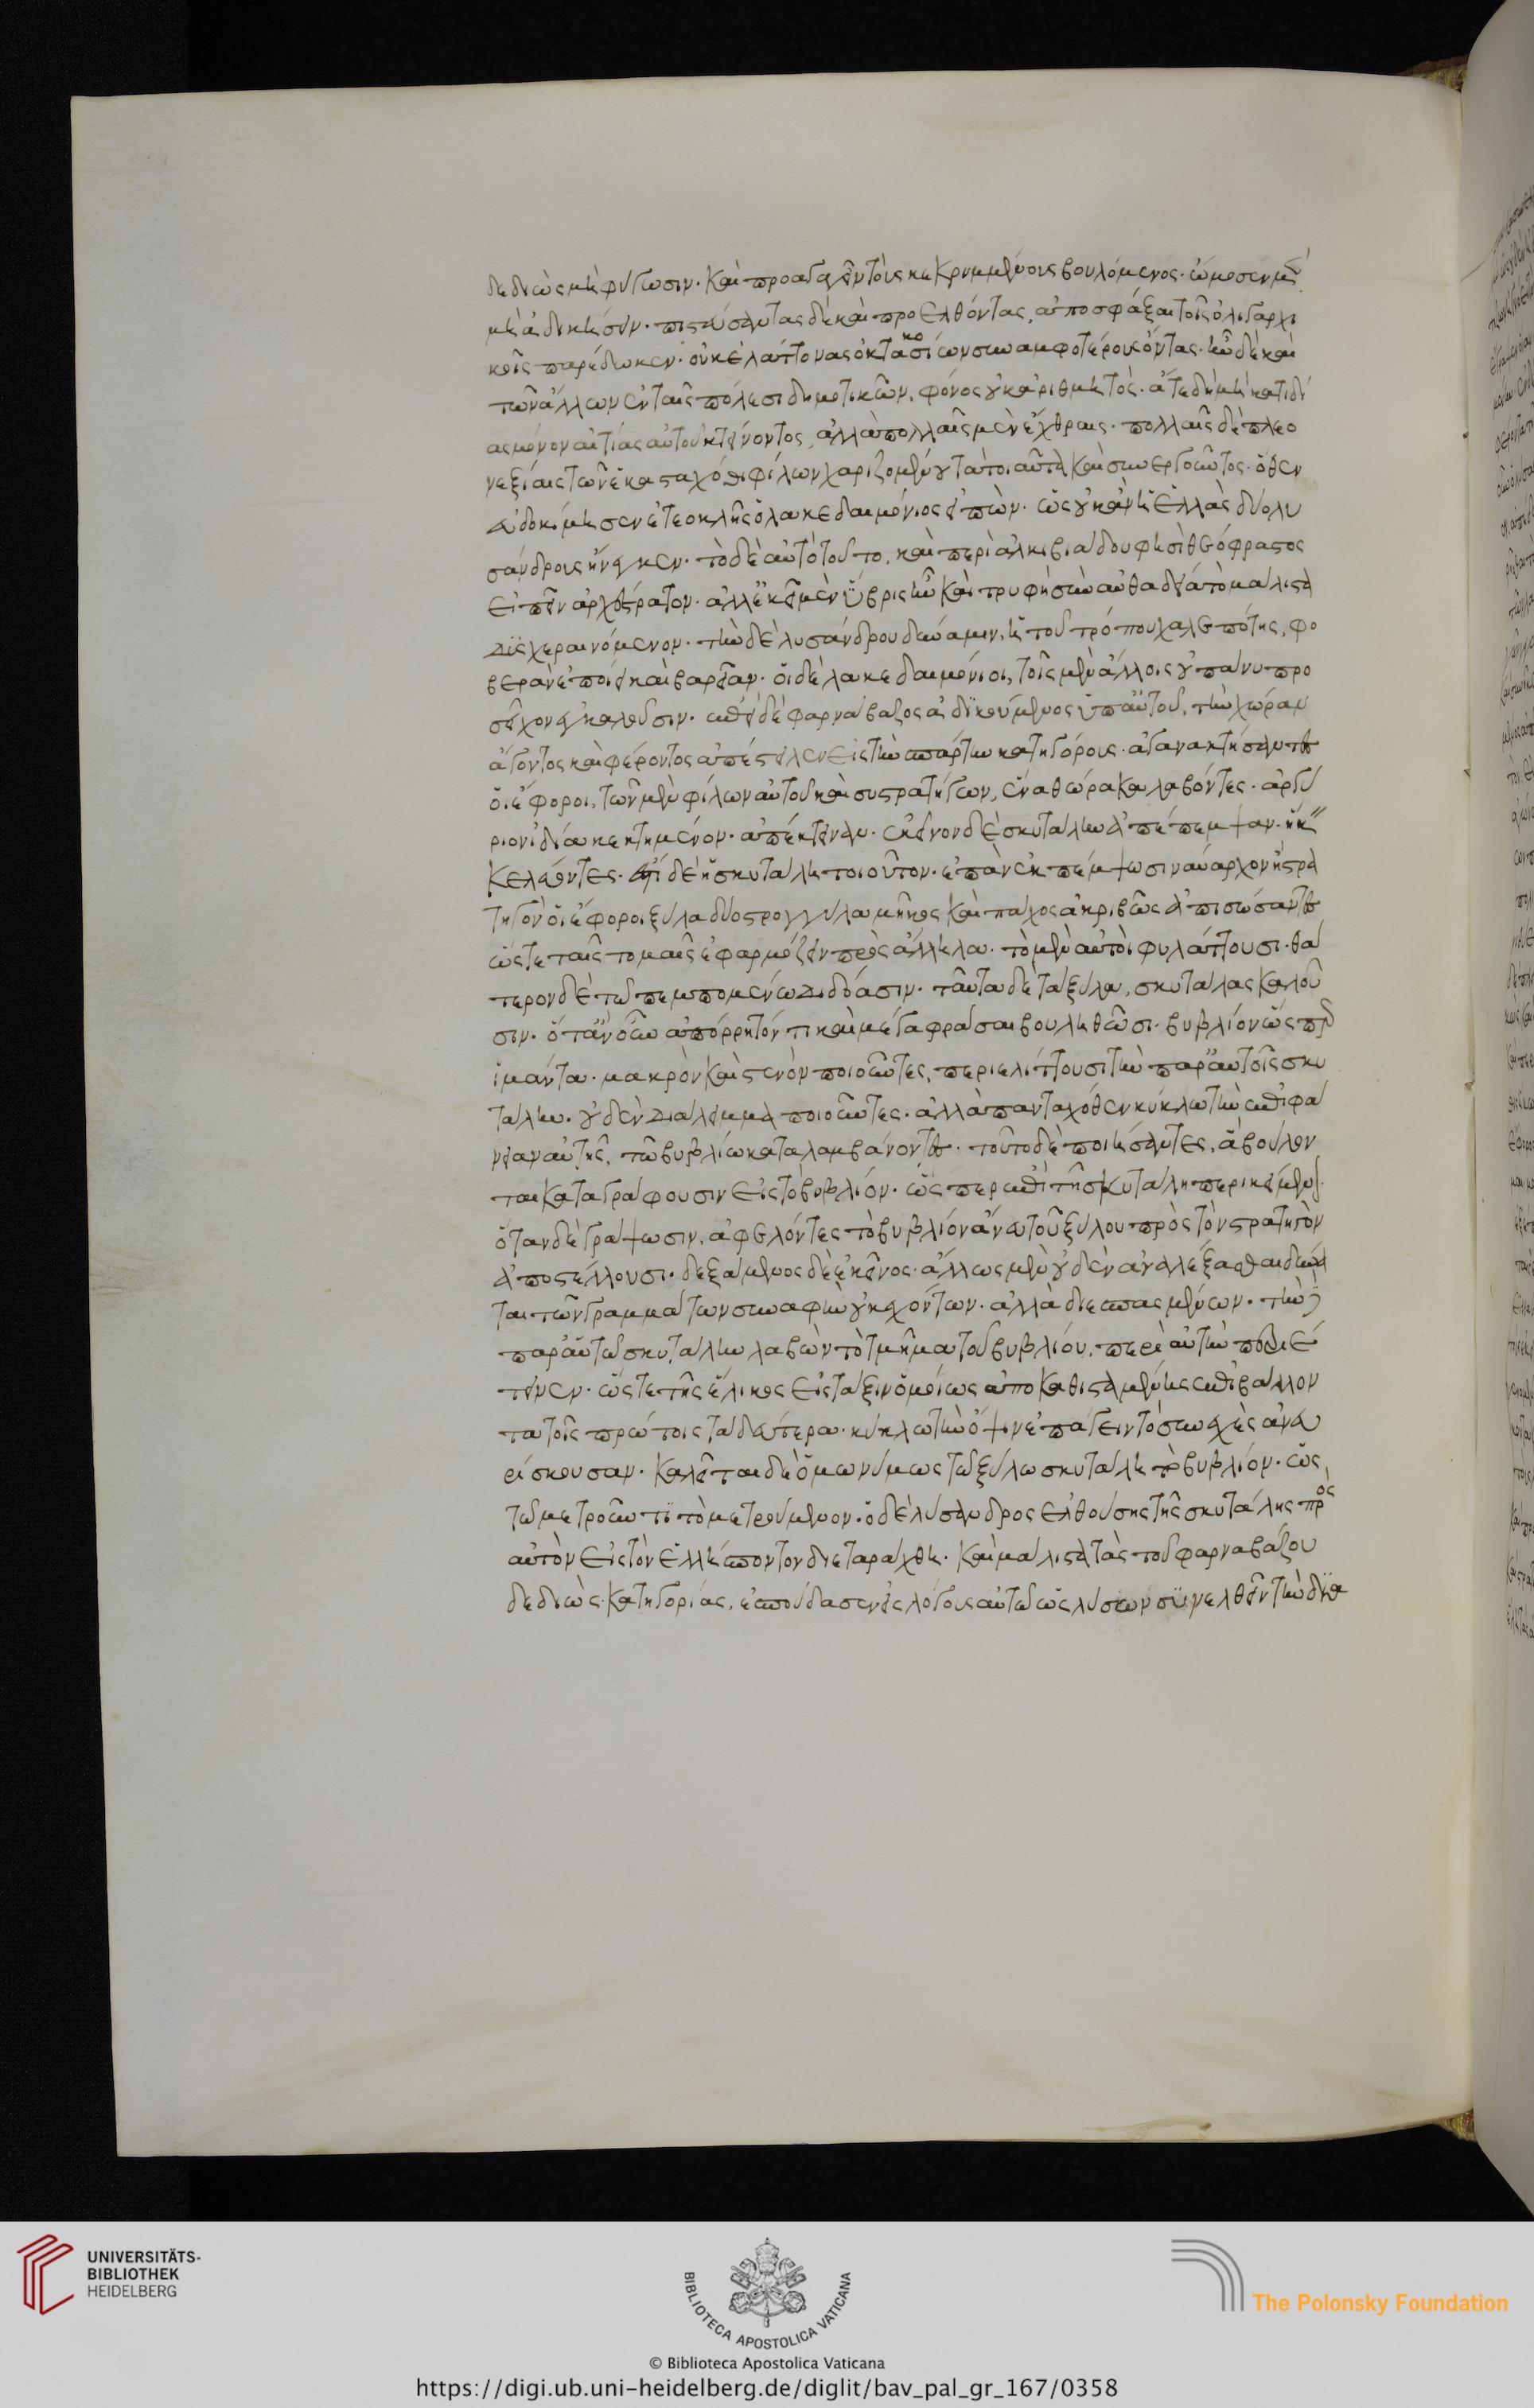 δεδιὼς μὴ φύγωσιν· καὶ προαγαγεῖν τοὺς κεκρυμμένους βουλόμενος· ὤμοσεν μὴν
μὴ ἀδικήσειν· πιστεύσαντας δὲ καὶ προελθόντας, ἀποσφάξαι τοῖς ὀλιγαρχι
κοῖς παρέδωκεν· οὐκ ἐλάττονας ὀκτακοσίων συναμφοτέρους ὄντας· ἦν δὲ καὶ
τῶν ἄλλων ἐν ταῖς πόλεσι δημοτικῶν, φόνος οὐκ ἀριθμητός· ἅτε δὴ μὴ κατ ἰδί
ας μόνον αἰτίας αὐτοῦ κτείνοντος, ἀλλὰ πολλαῖς μὲν ἔχθραις· πολλαῖς δὲ πλεο
νεξίαις τῶν ἑκασταχόθι φίλων χαριζομένου τὰ τοιαῦτα καὶ συνεργοῦντος· ὅθεν
εὐδοκίμησεν ἐτεοκλῆς ὁ λακεδαιμόνιος εἰπών· ὡς οὐκ ἂν ἡ ἑλλὰς δύο λυ
σάνδρους ἤνεγκεν· τὸ δὲ αὐτὸ τοῦτο, καὶ περὶ ἀλκιβιάδου φησὶ θεόφραστος
εἰπεῖν ἀρχέστρατον· ἀλλ ἐκεῖ μὲν ὕβρις ἦν καὶ τρυφὴ σὺν αὐθαδείᾳ τὸ μάλιστα
δυσχεραινόμενον· τὴν δὲ λυσάνδρου δύναμιν, ἡ τοῦ τρόπου χαλεπότης, φο
βερὰν ἐποίει καὶ βαρεῖαν· οἱ δὲ λακεδαιμόνιοι, τοῖς μὲν ἄλλοις οὐ πάνυ προ
σεῖχον ἐγκαλοῦσιν· ἐπεὶ δὲ φαρνάβαζος ἀδικούμενος ὑπ αὐτοῦ, τὴν χώραν
ἄγοντος καὶ φέροντος ἀπέστειλεν εἰς τὴν σπάρτην κατηγόρους· ἀγανακτήσαντες
οἱ ἔφοροι, τῶν μὲν φίλων αὐτοῦ καὶ συστρατήγων, ἕνα θώρακα λαβόντες· ἀργύ
ριον ἰδίᾳ κεκτημένον· ἀπέκτειναν· ἐκεῖνον δὲ σκυτάλην ἀπέπεμψαν· ἥκ
κελεύοντες· ἔστι δὲ ἡ σκυτάλη τοιοῦτον· ἐπὰν ἐκπέμψωσι ναύαρχον ἢ στρα
τηγὸν οἱ ἔφοροι ξύλα δύο στρογγύλα μῆκος καὶ πάχος ἀκριβῶς ἀπισώσαντες
ὥστε ταῖς τομαῖς ἐφαρμόζειν πρὸς ἄλληλα· τὸ μὲν αὐτοὶ φυλάττουσι· θά
τερον δὲ τῷ πεμπομένῳ διδόασιν· ταῦτα δὲ τὰ ξύλα, σκυτάλας καλοῦ
σιν· ὅταν οὖν ἀπόρρητόν τι καὶ μέγα φράσαι βουληθῶσι· βυβλίον ὥσπερ
ἱμάντα· μακρὸν καὶ στενὸν ποιοῦντες, περιελίττουσι τὴν παρ αὐτοῖς σκυ
τάλην· οὐδὲν διάλειμμα ποιοῦντες· ἀλλὰ πανταχόθεν κύκλῳ τὴν ἐπιφά
νειαν αὐτῆς, τῷ βυβλίῳ καταλαμβάνοντες· τοῦτο δὲ ποιήσαντες, ἃ βούλον
ται καταγράφουσιν εἰς τὸ βυβλίον· ὥσπερ ἐπὶ τῇ σκυτάλῃ περικείμενον·
ὅταν δὲ γράψωσιν, ἀφελόντες τὸ βυβλίον ἄνευ τοῦ ξύλου πρὸς τὸν στρατηγὸν
ἀποστέλλουσι· δεξάμενος δὲ ἐκεῖνος· ἄλλως μὲν οὐδὲν ἀναλέξασθαι δύνα
ται τῶν γραμμάτων συναφὴν οὐκ ἐχόντων· ἀλλὰ διεσπασμένων· τὴν δὲ
παρ αὑτῷ σκυτάλην λαβὼν τὸ τμῆμα τοῦ βυβλίου, περὶ αὐτὴν περιέ
τεινεν· ὥστε τῆς ἕλικος εἰς τάξιν ὁμοίως ἀποκαθισταμένης ἐπιβάλλον
τα τοῖς πρώτοις τὰ δεύτερα· κύκλῳ τὴν ὄψιν ἐπάγειν τὸ συνεχὲς ἀνευ
ρίσκουσαν· καλεῖται δὲ ὁμωνύμως τῷ ξύλῳ σκυτάλη τὸ βυβλίον· ὡς
τῷ μετροῦντι τὸ μετρούμενον· ὁ δὲ λύσανδρος ἐλθούσης τῆς σκυτάλης πρὸς
αὐτὸν εἰς τὸν ἑλλήσποντον διεταράχθη· καὶ μάλιστα τὰς τοῦ φαρναβάζου
δεδιὼς κατηγορίας, ἐσπούδασεν εἰς λόγους αὐτῷ ὡς λύσων συνελθεῖν τὴν δια
UNIVERSITÄTS-
BIBLIOTHEK
HEIDELBERG
BIBLIOTECA APOSTOLICA VATICANA
The Polonsky Foundation
© Biblioteca Apostolica Vaticana
https://digi.ub.uni-heidelberg.de/diglit/bav_pal_gr_167/0358